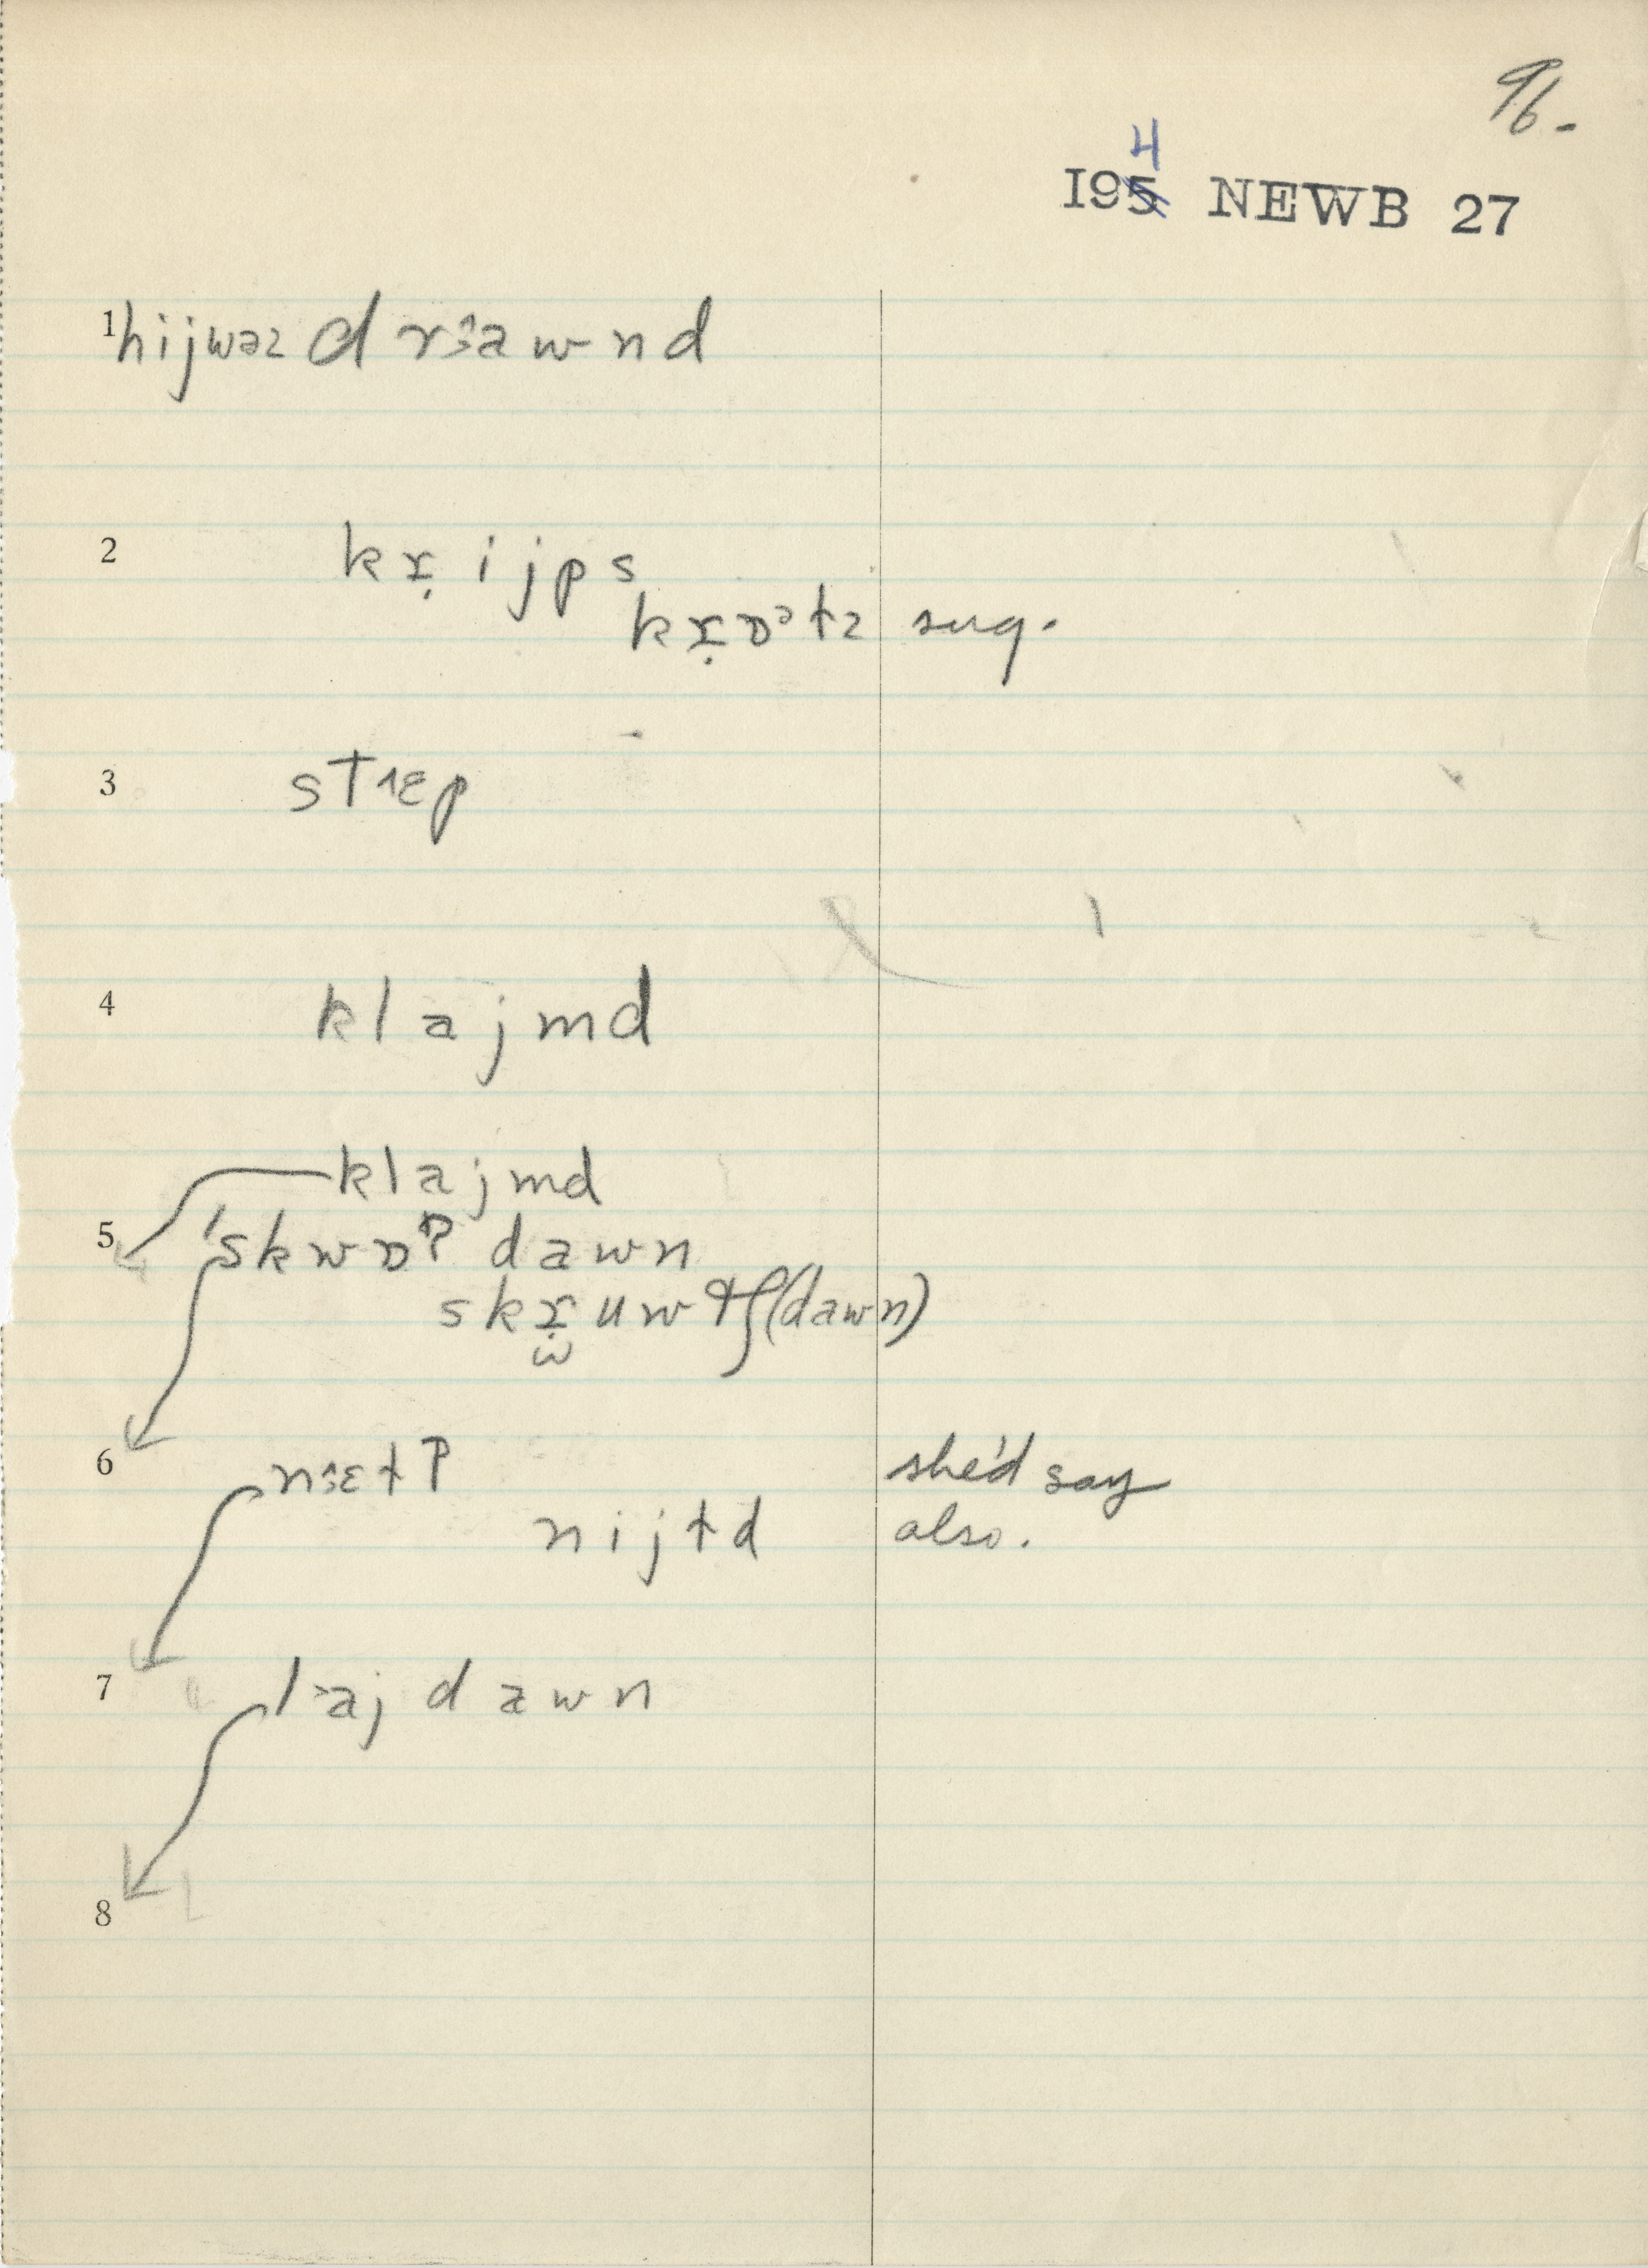 96.
4
195 NEWB 27
1 hijwəz d r˄awnd
2 kr̭ijps
kr̭ɒᵊtz sug.
3 st˄ɛp
4 klajmd
klajmd
5 'skwɒt˺ dawn
skr̭uwtʃ(dawn)
6 n˄ɛt˺ she'd say
nijtd also.
7 l˃aj dawn
8